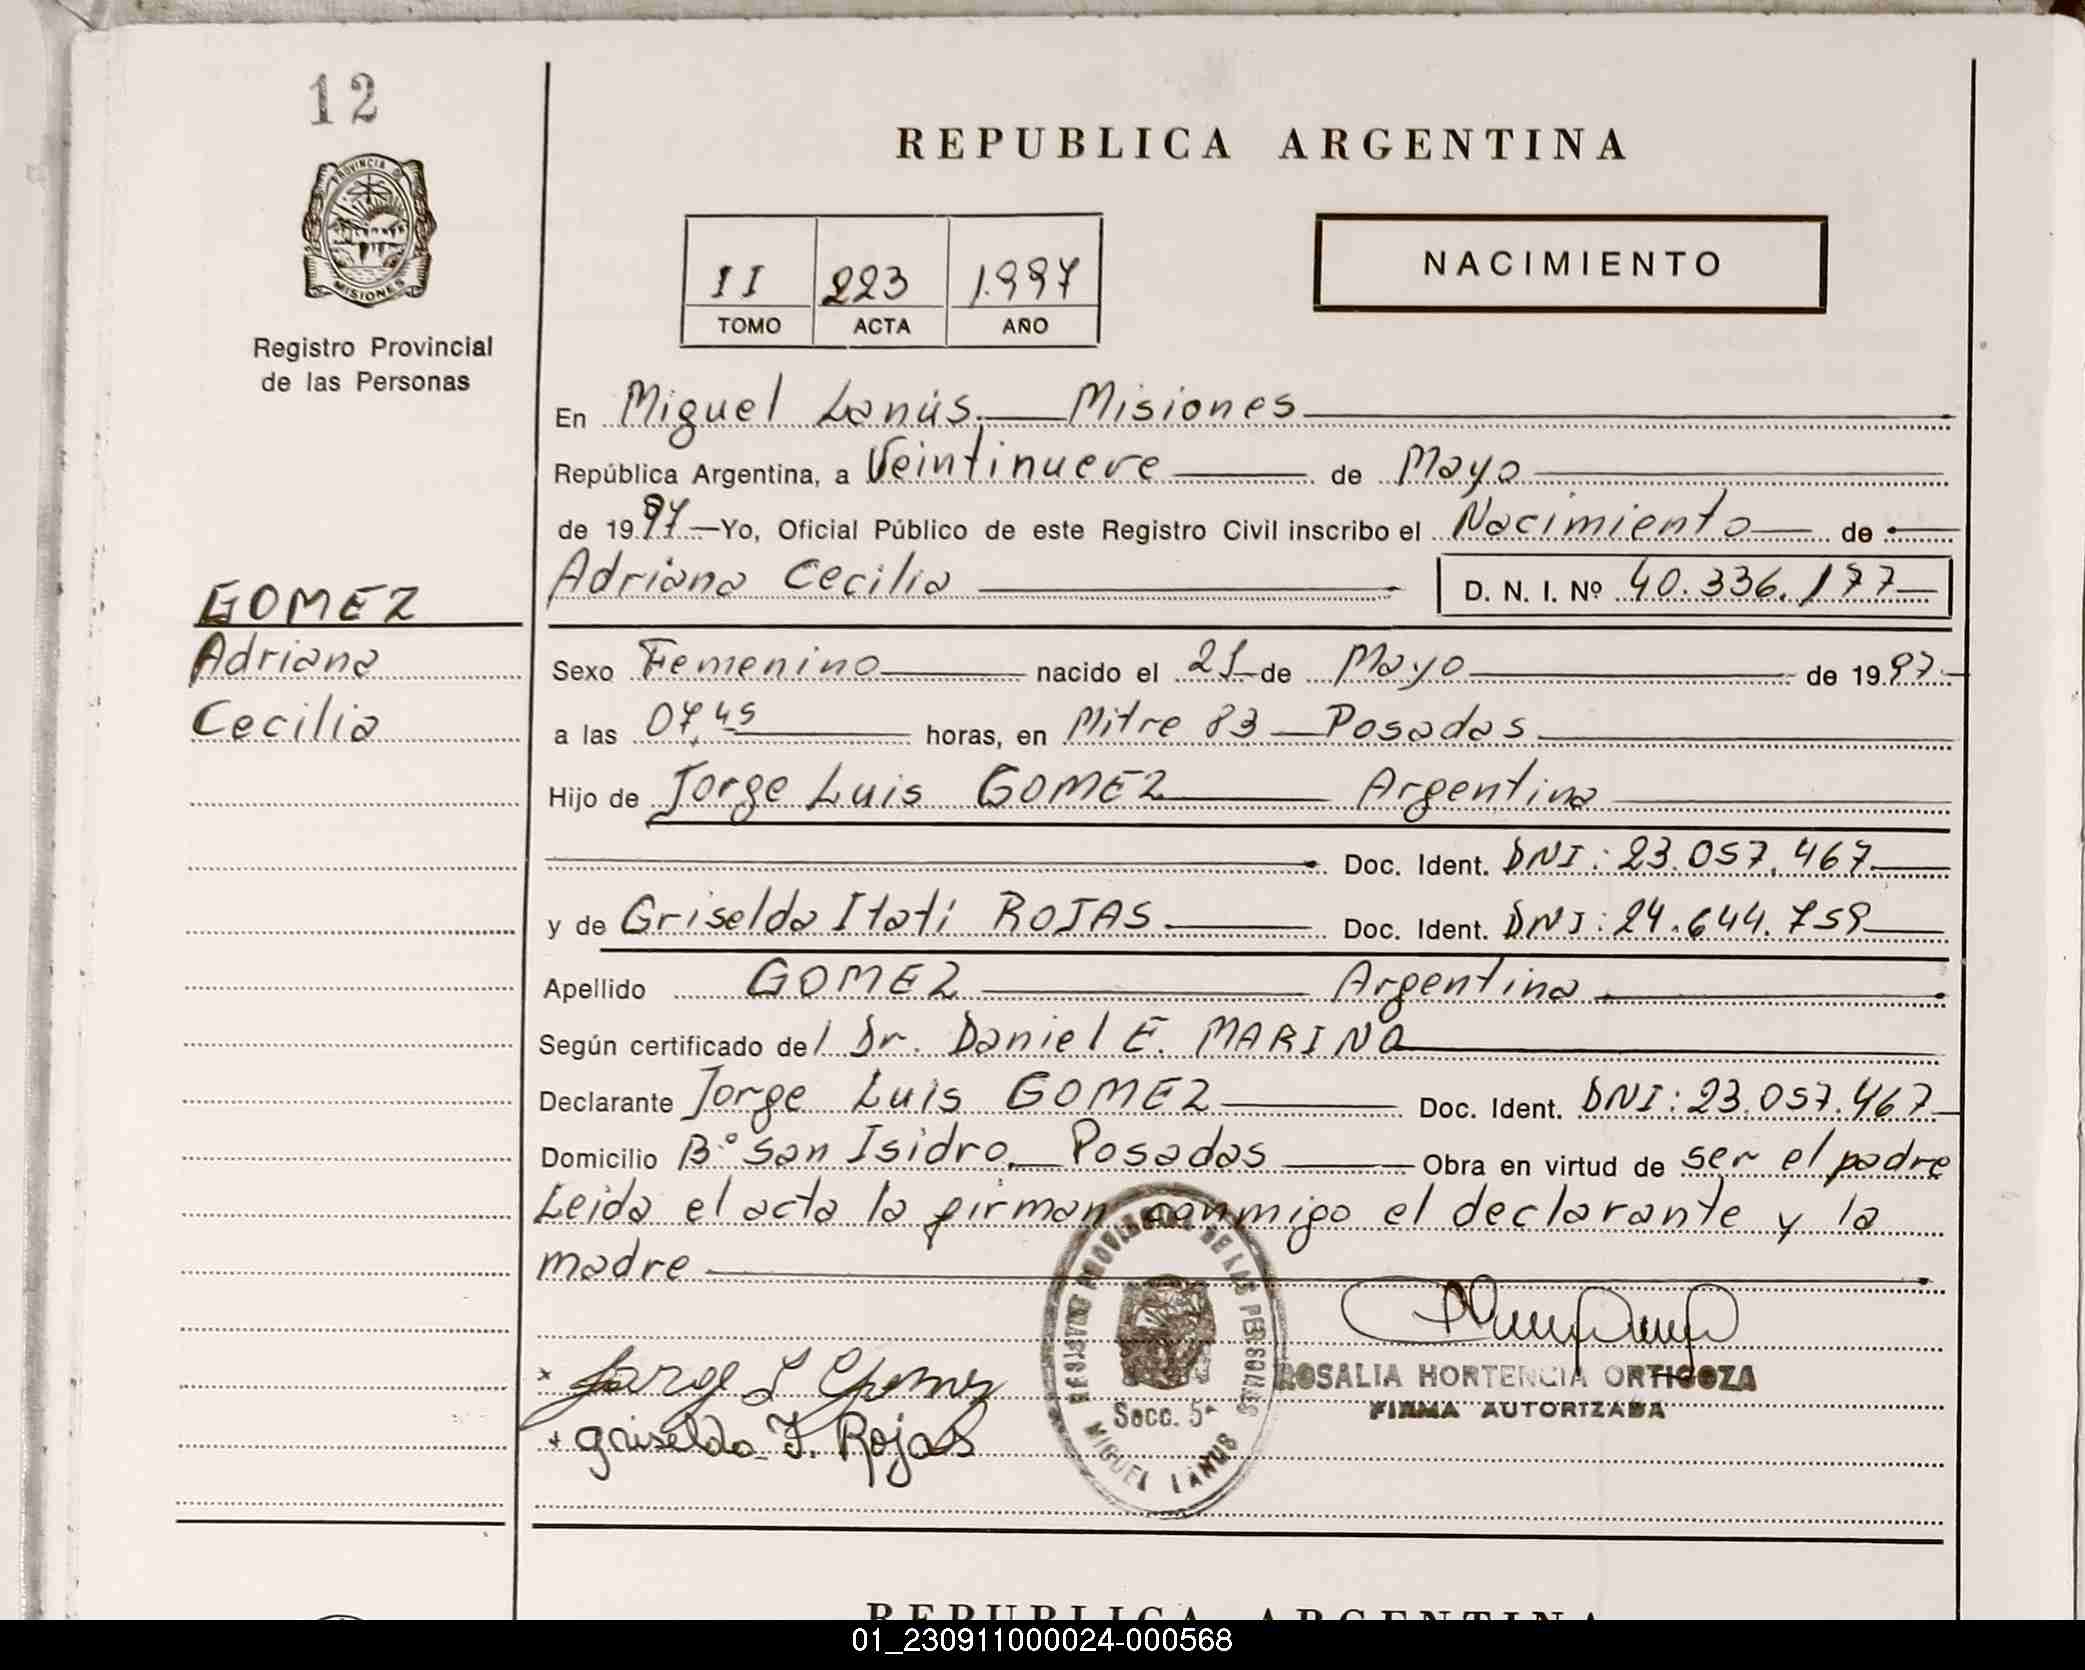 12
PROVINCIA DE
MISIONES
Registro Provincial
de las Personas
GOMEZ
Adriana
Cecilia
REPUBLICA ARGENTINA
II 223 1.997
TOMO ACTA AÑO
NACIMIENTO
En Miguel Lanús. Misiones
República Argentina, a Veintinueve de Mayo
de 1997 Yo, Oficial Público de este Registro Civil inscribo el Nacimiento de
Adriana Cecilia D. N. I. Nº 40.336.177
Sexo Femenino nacido el 21 de Mayo de 1997
a las 07,45 horas, en Mitre 83 Posadas
Hijo de Jorge Luis GOMEZ Argentina
Doc. Ident. DNI: 23.057.467
y de Griselda Itatí ROJAS Doc. Ident. DNI: 24.644.759
Apellido GOMEZ Argentina
Según certificado del Dr. Daniel E. MARINO
Declarante Jorge Luis GOMEZ Doc. Ident. DNI: 23.057.467
Domicilio B° San Isidro. Posadas Obra en virtud de ser el padre
Leida el acta la firman conmigo el declarante y la
madre
REGISTRO PROVINCIAL DE LAS PERSONAS
Secc. 5ª
MIGUEL LANUS
ROSALIA HORTENCIA ORTIGOZA
FIRMA AUTORIZADA
x Jorge L Gomez
+ Griselda I. Rojas
REPUBLICA ARGENTINA
01_230911000024-000568